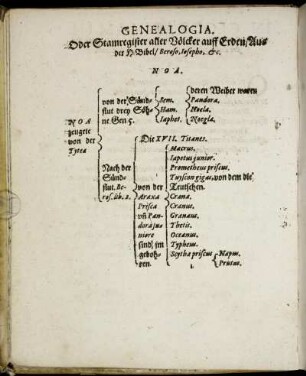 GENEALOGIA.
Oder Stamregister aller Völcker auff Erden/Aus
der H. Bibel/ Beroso, Iosepho, &c.
NOA.
NOA
zeugete
von der
Tytea
von der Sünd-
flut drey Söh-
ne Gen 5.
Sem.
Ham.
Iaphet.
deren Weiber waren
Pandora.
Noela.
Noegla.
Nach der
Sünd-
flut. Be-
ros. lib. 2.
von der
Araxa
Prisca
vñ Pan-
dora ju-
niore
sind jm
geboh-
ren.
Die XVII. Titanes.
Macrus.
Iapetus junior.
Prometheus priscus.
Tuyscon gigas, von dem die
Teutschen.
Crana.
Cranus.
Granaus.
Thetis.
Oceanus.
Typheus.
Scytha priscus
Napus.
Prutus.